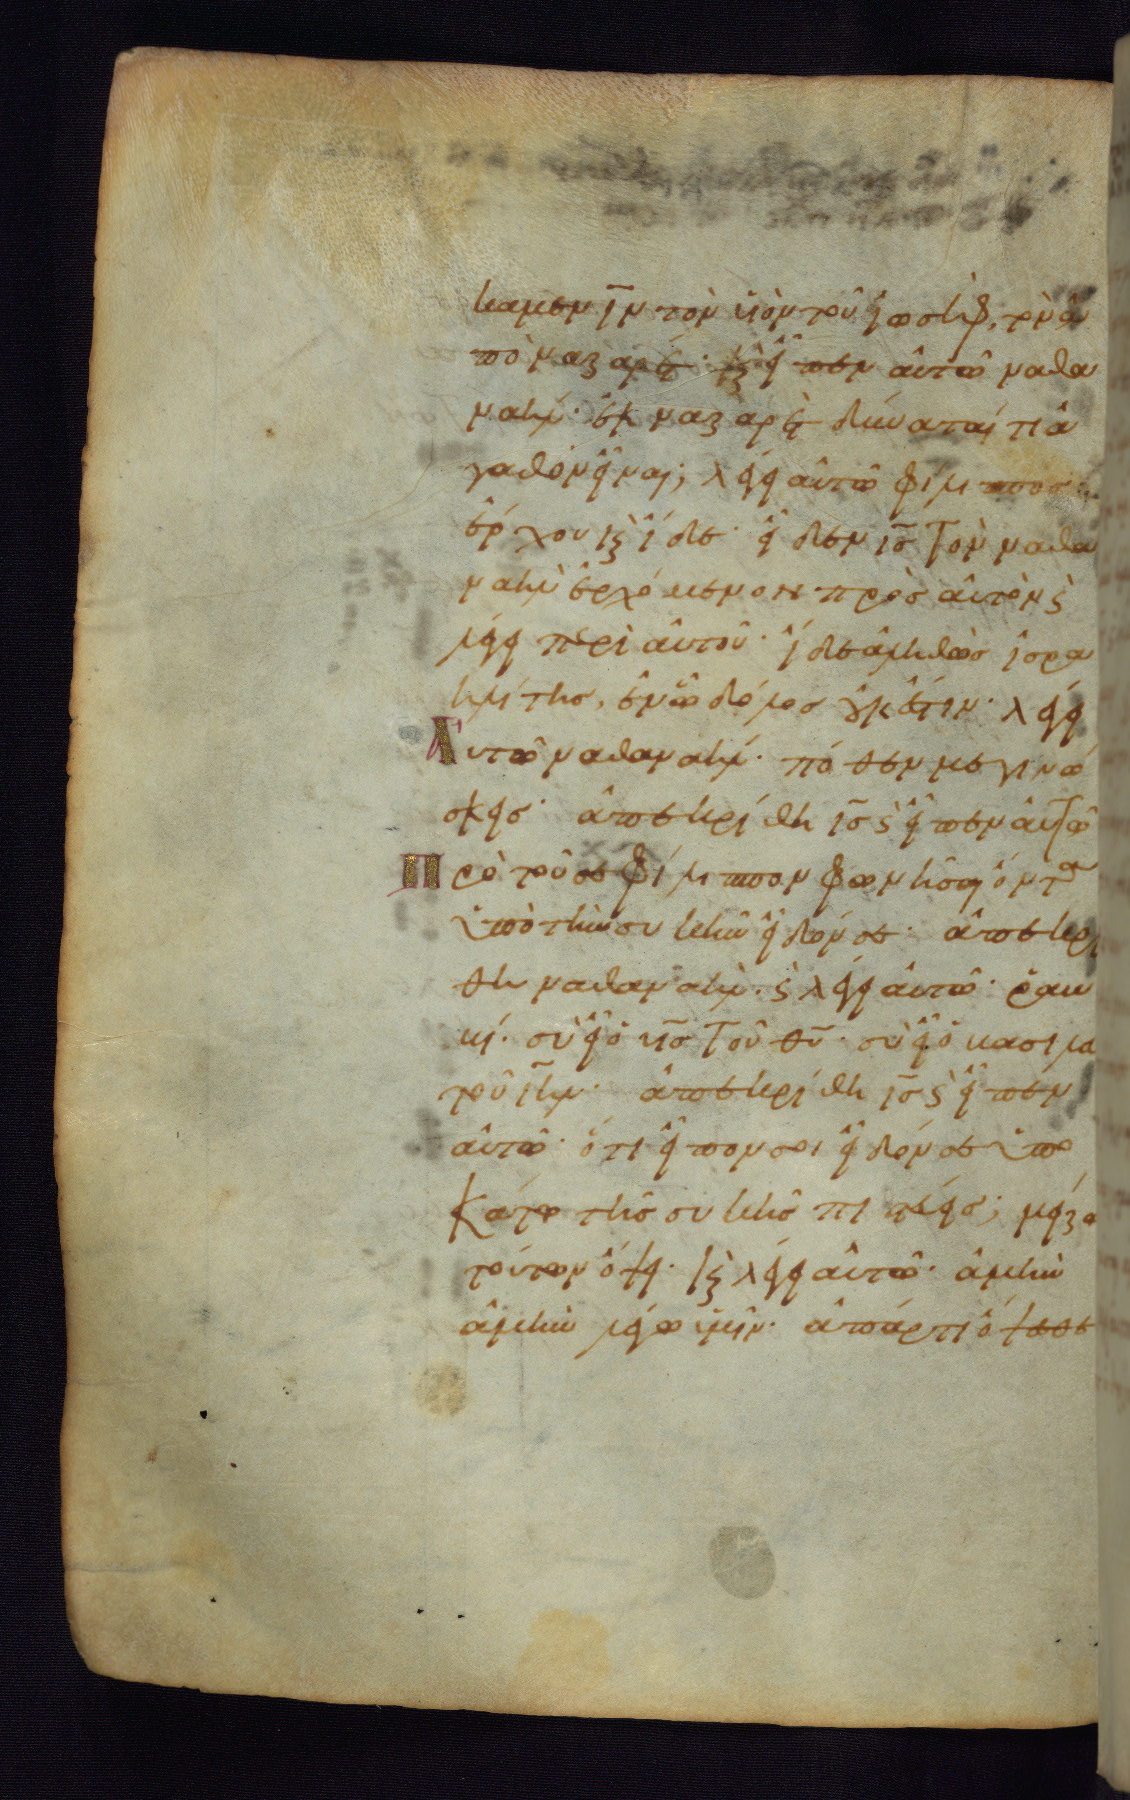 καμεν ιν τὸν υἱὸν τοῦ ἰωσὴφ, τὸν ἀ
πὸ ναζαρέτ· κ εἶπεν αὐτῶ ναθα
ναὴλ· ἐκ ναζαρὲτ δύναταί τι ἀ
γαθὸν εἶναι; λέγει αὐτῶ φίλιππος·
ἔρχου κ ἴδε· εἶδεν ις τὸν ναθα
ναὴλ ἐρχόμενον πρὸς αὐτὸν κ
λέγει περὶ αὐτοῦ· ἴδε ἀληθῶς ἰσρα
ηλίτης, ἐν ὧ δόλος οὐκ ἔστιν· λέγει
Αὐτῶ ναθαναήλ· πόθεν με γινώ
σκεις· ἀπεκρίθη ις κ εἶπεν αὐτῶ
Πρὸ τοῦ σε φίλιππον φωνῆσαι ὄντα
ὑπὸ τὴν συκῆν εἶδόν σε· ἀπεκρί
θη ναθαναὴλ· κ λέγει αὐτῶ· ῥαβ
βί· σὺ εἶ ὁ υἱς τοῦ θυ· σὺ εἶ ὁ βασιλε
τοῦ ιηλ· ἀπεκρίθη ις κ εἶπεν
αὐτῶ· ὅτι εἶπον σοι εἶδόν σε ὑπο
κάτω τῆς συκῆς πιστεύεις; μείζω
τούτων ὄψει· κ λέγει αὐτῶ· ἀμὴν
ἀμὴν λέγω ὑμῖν· ἀπάρτι ὄψεσθε